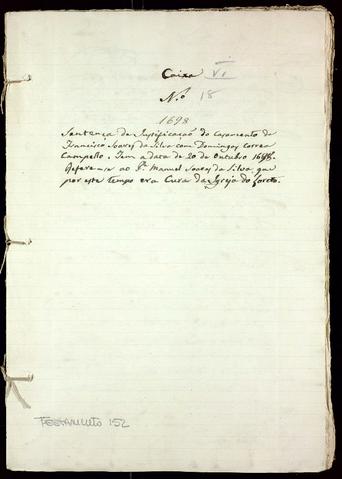 Caixa VI
N.o 18
1698
Sentença de Justificação do Casamento de
Francisco Soares da Silva com Domingas Correa
Campello. Tem a data de 20 de Outubro 1698.
Referem-se ao P.e Manuel Soares da Silva, que
por este tempo era Cura da Igreja do
TESTAMENTO 152